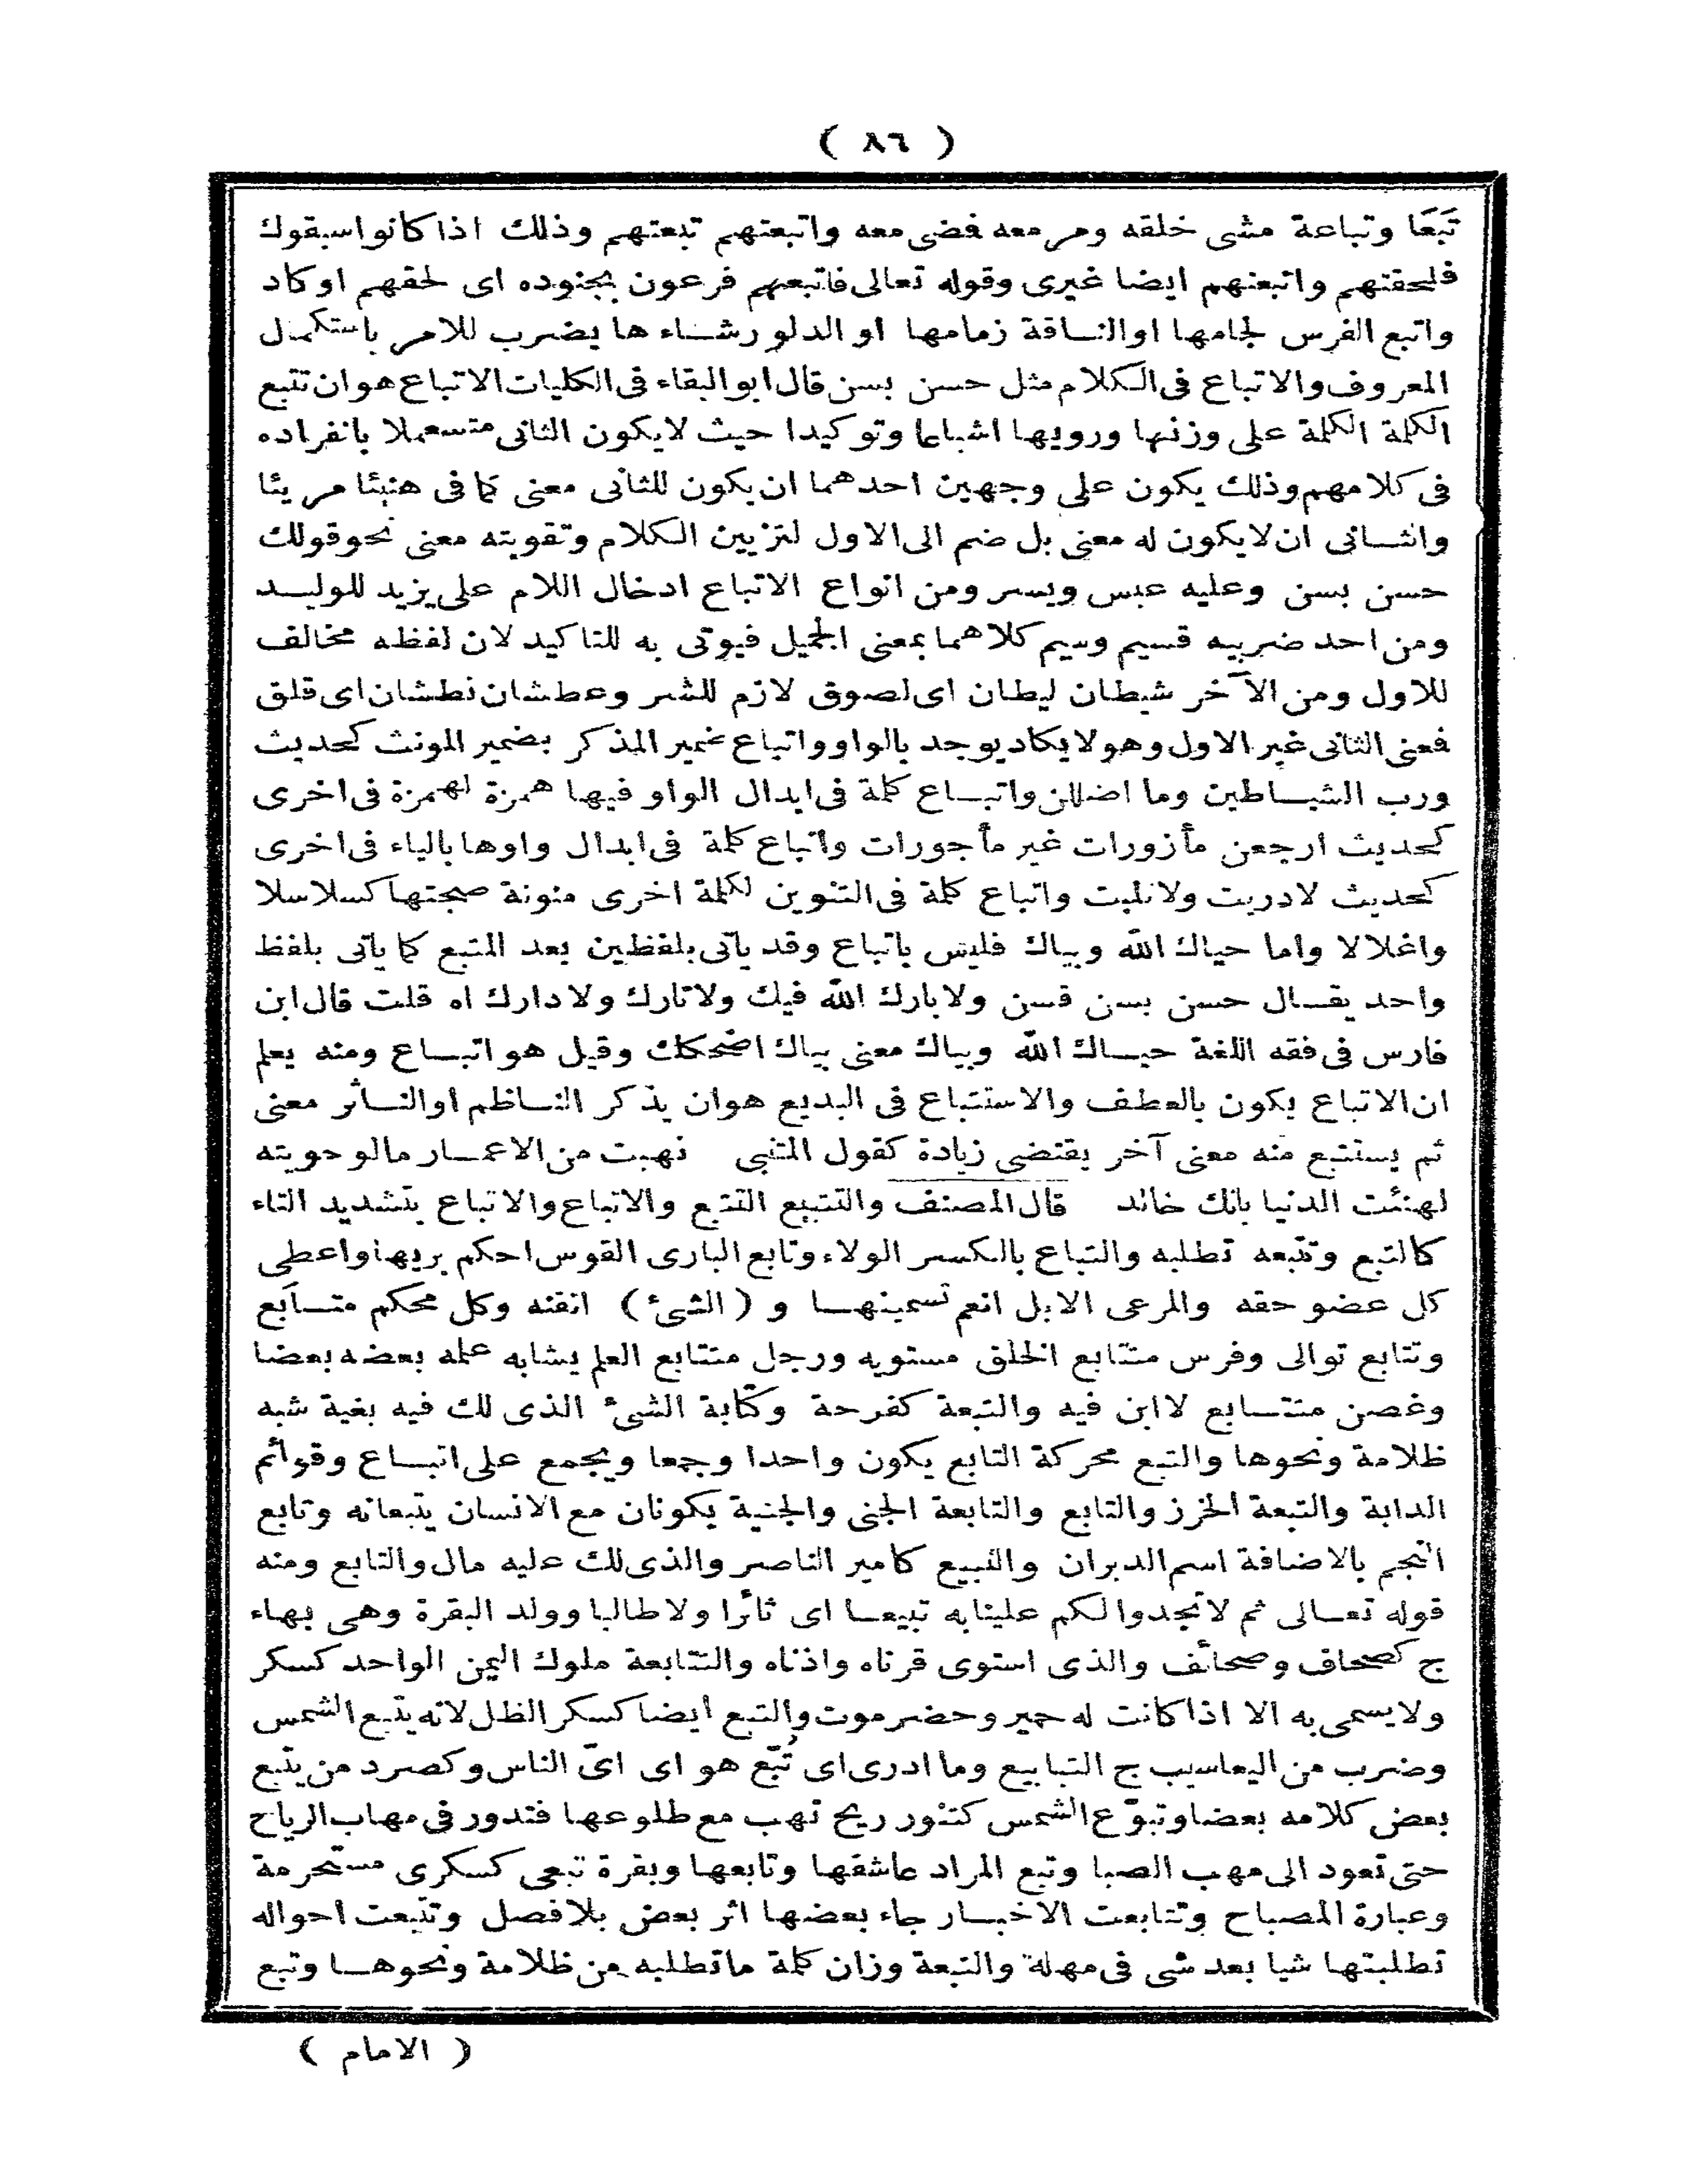 ( ٨٦ )
تَبَعًا وتباعة مشى خلفه ومر معه فضى معه واتبعتهم تبعتهم وذلك اذا كانوا سبقوك
فلحقتهم واتبعتهم ايضا غيرى وقوله تعالى فاتبعهم فرعون بجنوده اى لحقهم او كاد
واتبع الفرس لجامها او النـاقة زمامها او الدلو رشـاء ها يضرب للامر باستكمال
المعروف والاتباع فى الكلام مثل حسن بسن قال ابو البقاء فى الكليات الاتباع هو ان تتبع
الكلمة الكلمة على وزنها ورويها اشباعا وتوكيدا حيث لايكون الثانى متسعملا بانفراده
فى كلامهم وذلك يكون على وجهين احدهما ان يكون للثانى معنى كما فى هنيئا مريئا
واثـانى ان لايكون له معنى بل ضم الى الاول لتزيين الكلام وتقويته معنى نحو قولك
حسن بسن وعليه عبس ويسر ومن انواع الاتباع ادخال اللام على يزيد للوليـد
ومن احد ضربيه قسيم وسيم كلاهما بمعنى الجميل فيوتى به للتاكيد لان لفظه مخالف
للاول ومن الآخر شيطان ليطان اى لصوق لازم للشر وعطشان نطشان اى قلق
فعنى الثانى غير الاول وهو لايكاد يوجد بالواو واتباع ضمير المذكر بضمير المونث كحديث
ورب الشيـاطين وما اضللن واتبـاع كلمة فى ابدال الواو فيها همزة لهمزة فى اخرى
كحديث ارجعن مأزورات غير مأجورات واتباع كلمة فى ابدال واوها بالياء فى اخرى
كحديث لادريت ولاتليت واتباع كلمة فى التنوين لكلمة اخرى منونة صحبتها كسلاسلا
واغلالا واما حياك الله وبياك فليس باتباع وقد ياتى بلفظين بعد المتبع كما ياتى بلفظ
واحد يقـال حسن بسن قسن ولا بارك الله فيك ولاتارك ولادارك اه قلت قال ابن
فارس فى فقه اللغة حيـاك الله وبياك معنى بياك اضحكك وقيل هو اتبـاع ومنه يعلم
ان الاتباع يكون بالعطف والاستتباع فى البديع هو ان يذكر النـاظم او النـاثر معنى
ثم يستتبع منه معنى آخر يقتضى زيادة كقول المتنبى نهبت من الاعمـار مالو حويته
لهنئت الدنيا بانك خالد قال المصنف والتتبيع التتبع والاتباع والاتباع بتشديد التاء
كالتبع وتتبعه تطلبه والتباع بالكسر الولاء وتابع البارى القوس احكم بريها واعطى
كل عضو حقه والمرعى الابل انعم تسمينهـا و (الشىء) اتقنه وكل محكم متـابَع
وتتابع توالى وفرس متتابع الخلق مستويه ورجل متتابع العلم يشابه علمه بعضه بعضا
وغصن متتـابع لاابن فيه والتبعة كفرحة وكتابة الشىء الذى لك فيه بغية شبه
ظلامة ونحوها والتبع محركة التابع يكون واحدا وجمعا ويجمع على اتبـاع وقوائم
الدابة والتبعة الخرز والتابع والتابعة الجنى والجنية يكونان مع الانسان يتبعانه وتابع
النجم بالاضافة اسم الدبران والتبيع كامير الناصر والذى لك عليه مال والتابع ومنه
قوله تعـالى ثم لاتجدوا لكم علينا به تبيعـا اى ثائرا ولا طالبا وولد البقرة وهى بهاء
ج كصحاف وصحائف والذى استوى قرناه واذناه والتتابعة ملوك اليمن الواحد كسكر
ولايسمى به الا اذا كانت له حمير وحضرموت والتبع ايضا كسكر الظل لانه يتبع الشمس
وضرب من اليعاسيب ج التبابيع وما ادرى اى تُبّع هو اى اىّ الناس وكصرد من يتبع
بعض كلامه بعضا وتبوّع الشمس كتنور ريح تهب مع طلوعها فتدور فى مهاب الرياح
حتى تعود الى مهب الصبا وتبع المراد عاشقها وتابعها وبقرة تبعى كسكرى مستحرمة
وعبارة المصباح وتتابعت الاخبـار جاء بعضها اثر بعض بلا فصل وتتبعت احواله
تطلبتها شيا بعد شى فى مهلة والتبعة وزان كلمة ماتطلبه من ظلامة ونحوهـا وتبع
( الامام )